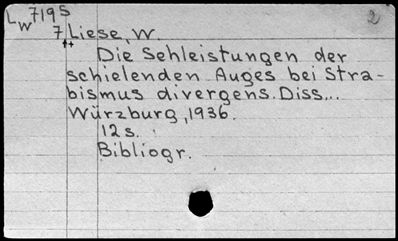 Lw 719s 2
7 Liese, W.
††
Die Sehleistungen der
schielenden Auges bei Stra-
bismus divergens. Diss...
Würzburg, 1936.
12 s.
Bibliogr.